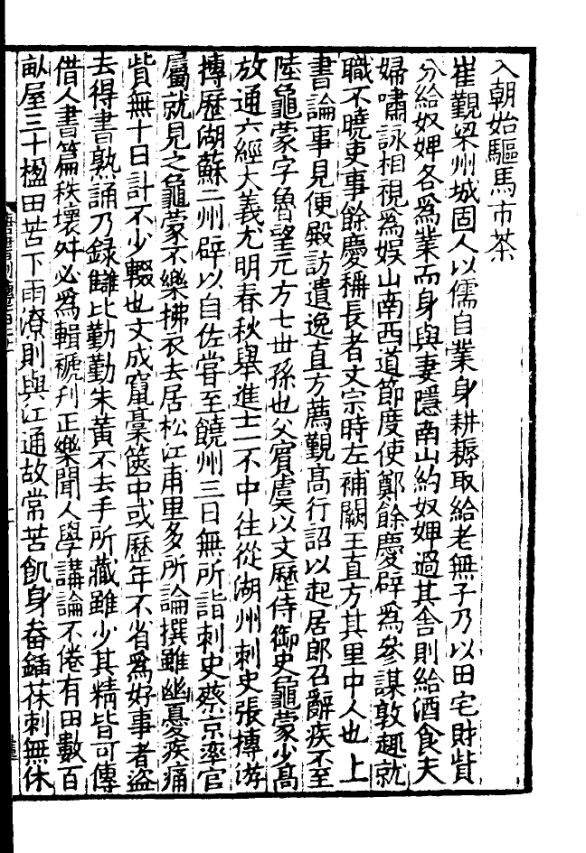 入朝始驅馬市茶
崔覲梁州城固人以儒自業身耕耨取給老無子乃以田宅財貲
分給奴婢各爲業而身與妻隱南山約奴婢過其舍則給酒食夫
婦嘯詠相視爲娛山南西道節度使鄭餘慶辟爲參謀敦趣就
職不曉吏事餘慶稱長者文宗時左補闕王直方其里中人也上
書論事見便殿訪遺逸直方薦覲高行詔以起居郎召辭疾不至
陸龜蒙字魯望元方七世孫也父賓虞以文歷侍御史龜蒙少高
放通六經大義尤明春秋舉進士一不中往從湖州刺史張摶游
摶歷湖蘇二州辟以自佐甞至饒州三日無所詣刺史蔡京率官
屬就見之龜蒙不樂拂衣去居松江甫里多所論撰雖幽憂疾痛
貲無十日計不少輟也文成竄稾篋中或歷年不省爲好事者盜
去得書熟誦乃録讎比勤勤朱黃不去手所藏雖少其精皆可傳
借人書篇秩壞舛必爲輯褫刋正樂聞人學講論不倦有田數百
畝屋三十楹田苦下雨潦則與江通故常苦飢身畚鍤茠刺無休